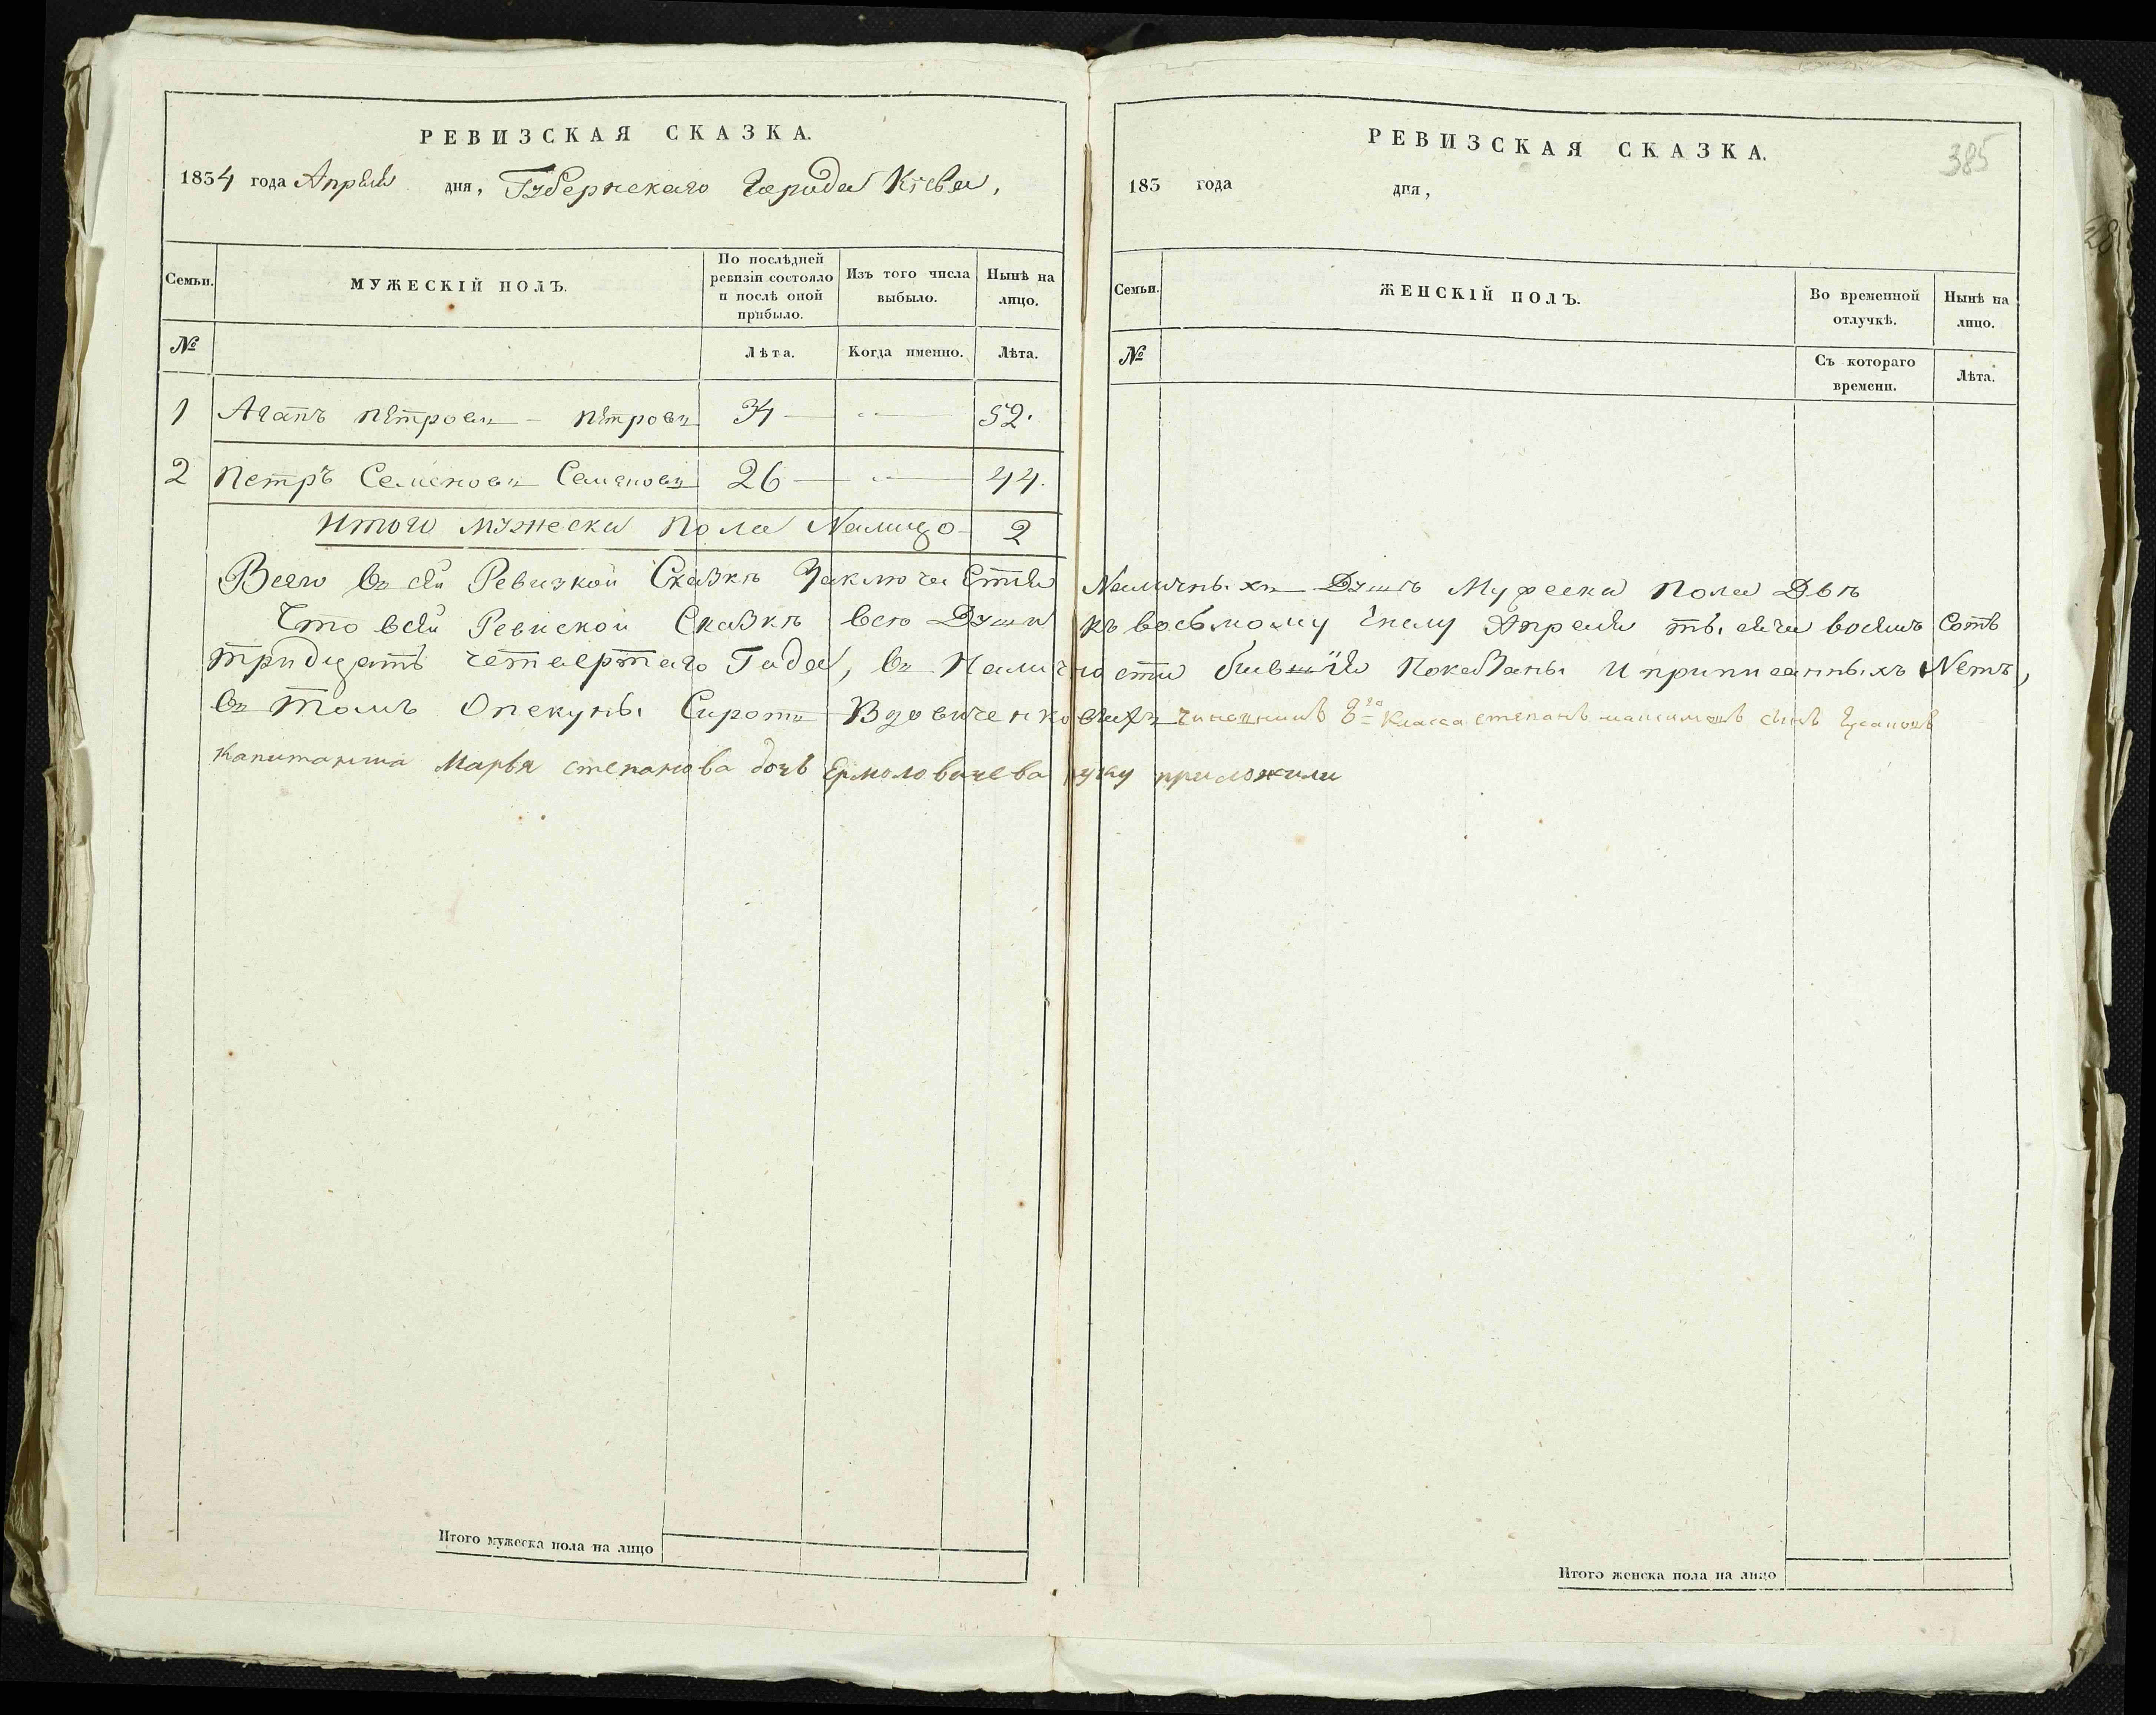 РЕВИЗСКАЯ СКАЗКА.
1834 года Апреля дня, Губернскаго Города Кіева,
Семьи.
МУЖЕСКІЙ ПОЛЪ.
По послѣдней ревизіи состояло и послѣ оной прибыло.
Изъ того числа выбыло.
Нынѣ на лицо.
№
Лѣта.
Когда именно.
Лѣта.
1 Агапъ Петровъ Петровъ 34 — — 52.
2 Петръ Семеновъ Семеновъ 26 — — 44.
Итого мужеска Пола Налицо 2
РЕВИЗСКАЯ СКАЗКА.
385
183 года дня,
Семьи.
ЖЕНСКІЙ ПОЛЪ.
Во временной отлучкѣ.
Нынѣ на лицо.
№
Съ котораго времени.
Лѣта.
Всего въ сей Ревизкой Сказкѣ Заключается Наличныхъ Душъ Мужеска Пола Двѣ
Что всей Ревиской Сказкѣ всѣ Души къ восьмому числу Апреля тысяча восемъ Сотъ
тридцать четвертаго Года, въ Наличности бывшія Показаны И приписанныхъ Нетъ,
въ томъ Опекуны Сиротъ Вдовиченковыхъ чиновникъ 8го Класса степанъ максимовъ сынъ
капитанша Марья степанова дочь Ермоловичева руку приложили
Итого мужеска пола на лицо
Итого женска пола на лицо